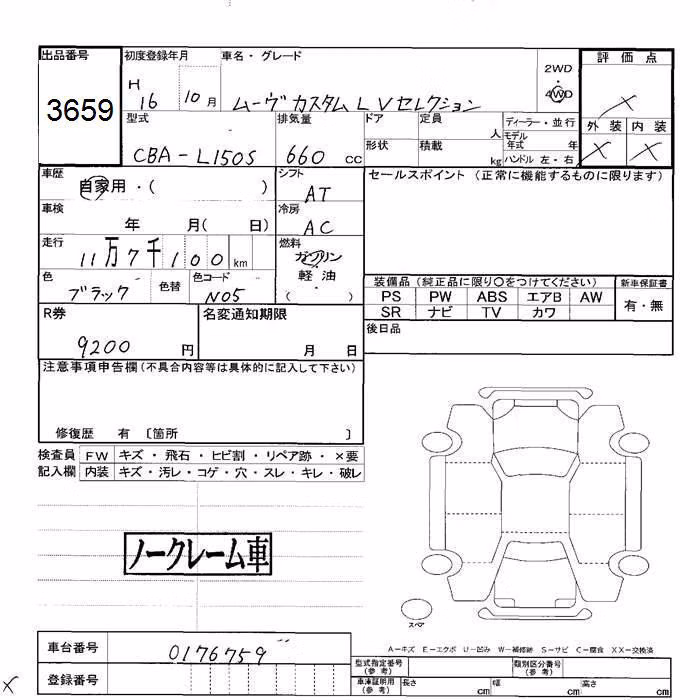 出品番号 初度登録年月 車名・グレード 2WD 4WD 評価点
3659 H 16 年 10月 ムーヴ カスタム L Vセレクション ×
型式 排気量 ドア 定員 人 ディーラー・並行 外装 内装
CBA-L150S 660 cc 形状 積載 kg モデル年式 年 ハンドル 左・右 × ×
車歴 シフト セールスポイント(正常に機能するものに限ります)
自家用・( ) AT
車検 冷房
年 月( 日) AC
走行 燃料
11万7千100km ガソリン
軽油
( )
色 色替 色コード
ブラック N05
装備品(純正品に限り○をつけてください) 新車保証書
PS PW ABS エアB AW 有・無
SR ナビ TV カワ
R券 名変通知期限 後日品
9200円 月 日
注意事項申告欄(不具合内容等は具体的に記入して下さい)
修復歴 有 〔箇所 〕
検査員 FW キズ・飛石・ヒビ割・リペア跡・×要
記入欄 内装 キズ・汚レ・コゲ・穴・スレ・キレ・破レ
ノークレーム車
スペア
A-キズ E-エクボ U-凹み W-補修跡 S-サビ C-腐食 XX-交換済
車台番号 0176759
登録番号
型式指定番号(参考) 類別区分番号(参考)
車庫証明用(参考) 長さ cm 幅 cm 高さ cm
×